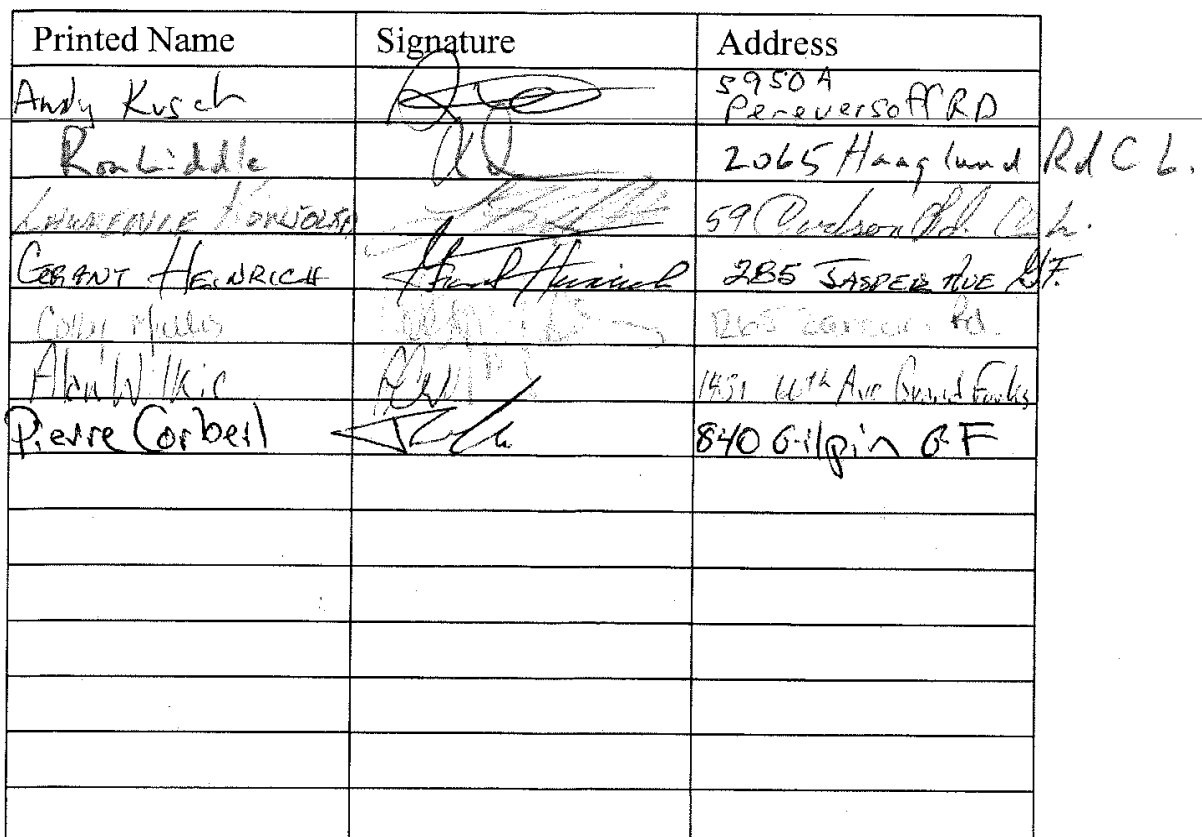 Printed Name Signature Address
Andy Kusch 5950A
Pereversoff RD
Ron Liddle 2065 Haaglund Rd C L.
LAWRENCE 59 Carlson Rd. C.L.
GRANT HEINRICH Grant Heinrich 285 JASPER AVE G/F.
Rd.
Alan Wilkie Ave Grand Forks
Pierre Corbeil 840 Gilpin GF